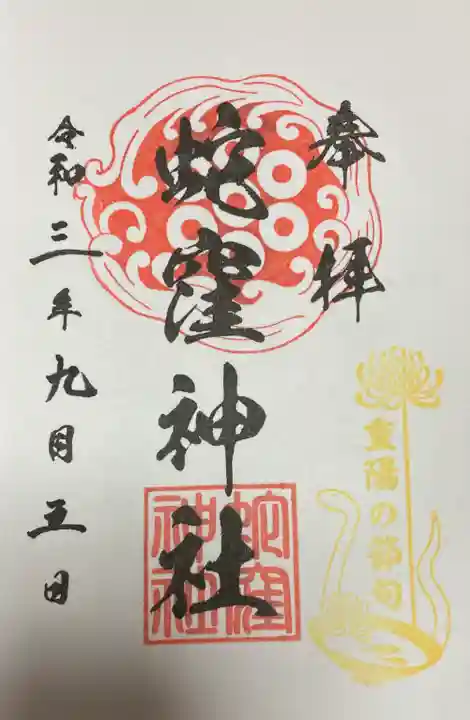 奉拝
蛇窪神社
蛇窪神社
令和三年九月五日
重陽の節句